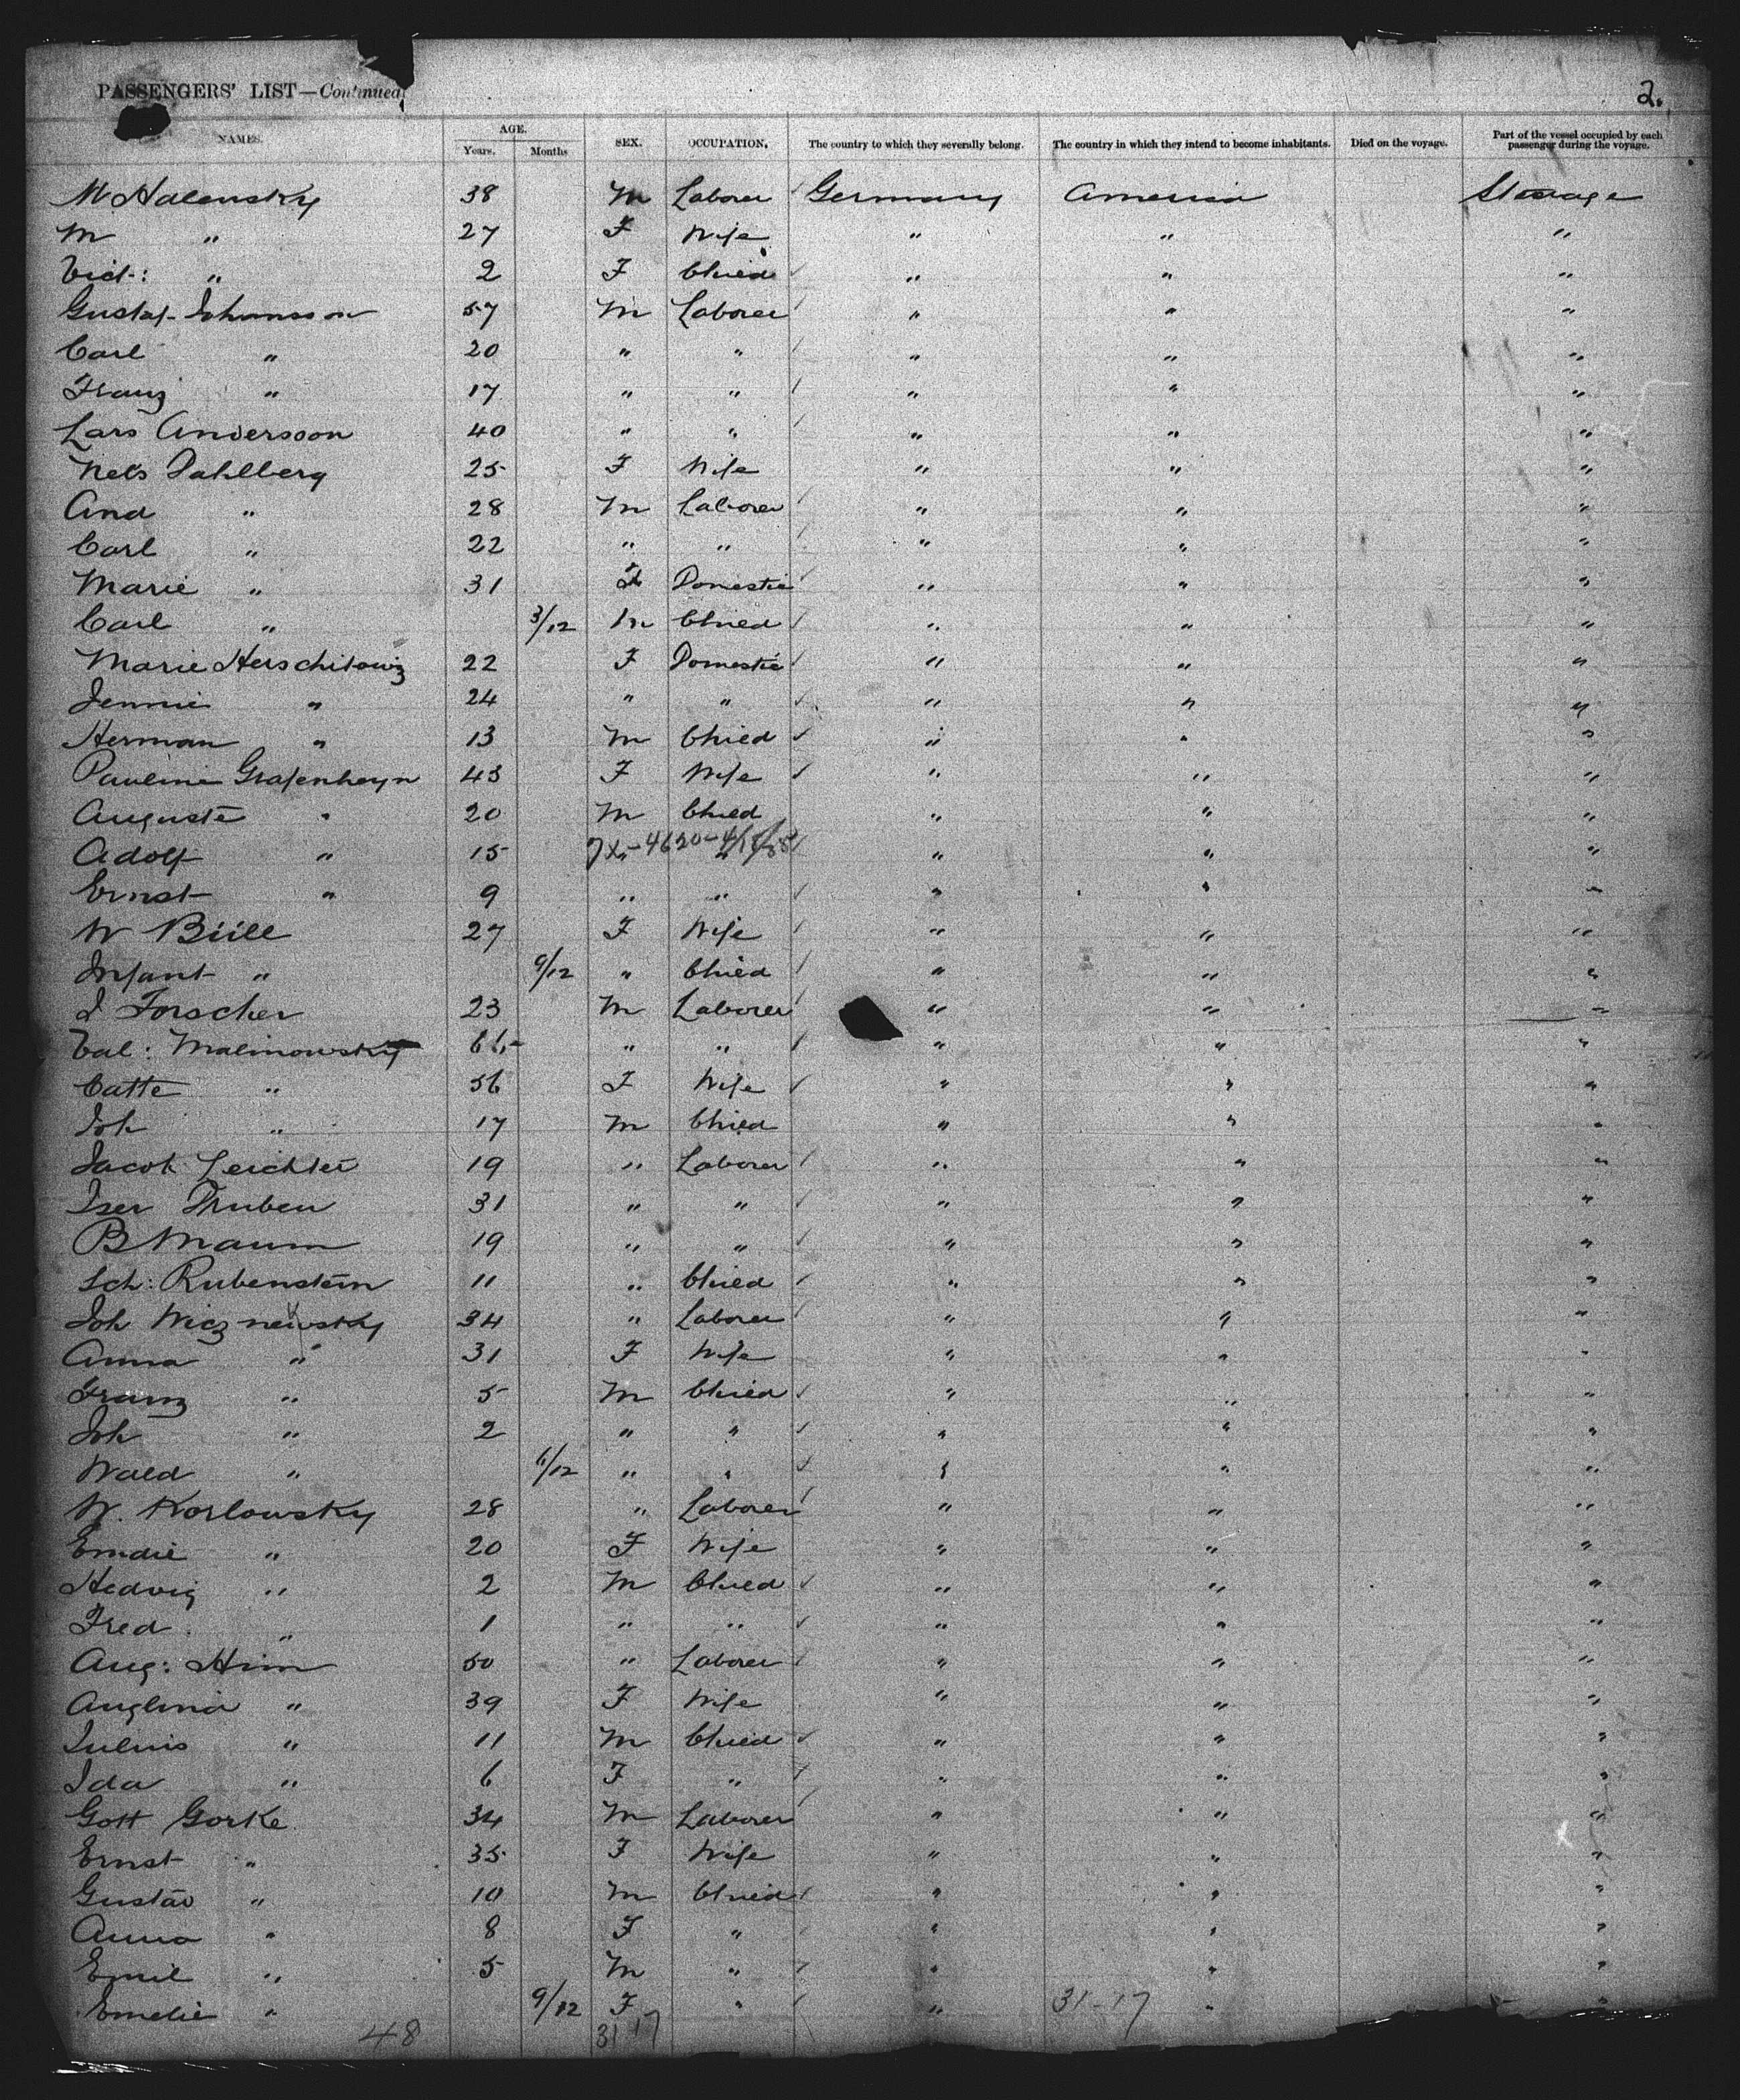 PASSENGERS' LIST—Continued. 2.
NAMES. AGE. Years. Months SEX. OCCUPATION. The country to which they severally belong. The country in which they intend to become inhabitants. Died on the voyage. Part of the vessel occupied by each passenger during the voyage.
M Halensky 38 M Laborer Germany America Steerage
M " 27 F Wife " " "
Vict: " 2 F Child " " "
Gustaf Johansson 57 M Laborer " " "
Carl " 20 " " " " "
Franz " 17 " " " " "
Lars Andersson 40 " " " " "
Nels Dahlberg 25 F Wife " " "
And " 28 M Laborer " " "
Carl " 22 " " " " "
Marie " 31 F Domestic " " "
Carl " 3/12 M Child " " "
Marie Herschitowiz 22 F Domestic " " "
Jennie " 24 " " " " "
Herman " 13 M Child " " "
Pauline Grafenheyn 43 F Wife " " "
Auguste " 20 M Child " " "
Adolf " 15 " " " " "
Ernst " 9 " " " " "
W Büll 27 F Wife " " "
Infant " 9/12 " Child " " "
I Forscher 23 M Laborer " " "
Val: Malinowsky " " " " "
Catte " 56 F Wife " " "
Joh " 17 M Child " " "
Jacob Leichter 19 " Laborer " " "
Iser Thuben 31 " " " " "
B Maum 19 " " " " "
Sch: Rubenstein 11 " Child " " "
Joh Wicznewsky 34 " Laborer " " "
Anna " 31 F Wife " " "
Franz " 5 M Child " " "
Joh " 2 " " " " "
Wald " 6/12 " " " " "
W. Korlowsky 28 " Laborer " " "
Emilie " 20 F Wife " " "
Hedwig " 2 M Child " " "
Fred " 1 " " " " "
Aug: Hinn 50 " Laborer " " "
Auglina " 39 F Wife " " "
Julius " 11 M Child " " "
Ida " 6 F " " " "
Gott Gorke 34 M Laborer " " "
Ernst " 35 F Wife " " "
Gustav " 10 M Child " " "
Anna " 8 F " " " "
Emil " 5 M " " " "
Emelie " 9/12 F " " 31-17 " "
48 31 17